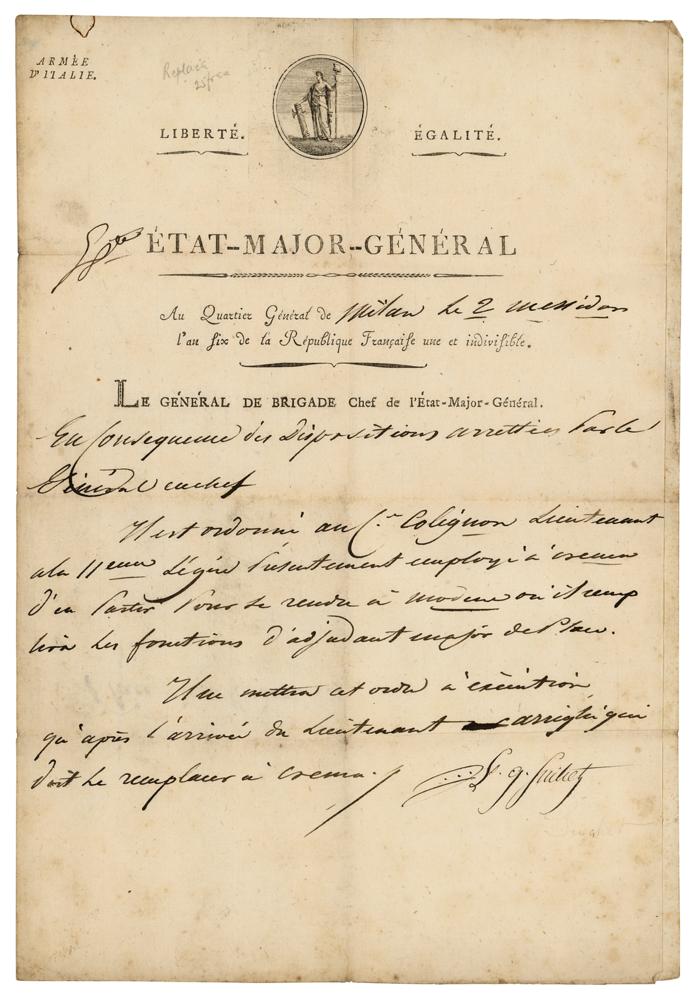 ARMÉE
D'ITALIE.
LIBERTÉ.
ÉGALITÉ.
ÉTAT--MAJOR--GÉNÉRAL
Au Quartier Général de Milan le 2 messidor
l'an six de la République Française une et indivisible.
LE GÉNÉRAL DE BRIGADE Chef de l'État-Major-Général.
En Consequence des Dispositions arrettées Par le
Général en chef
Il est ordonné au C.en Colignon Lieutenant
a la 11eme Légère Présentement employé à crema
d'en Partir Pour se rendre à modene où il remp
lira les fonctions d'adjudant major de Place.
Il ne mettra cet ordre à exécution
qu'après l'arrivée du Lieutenant carrighi qui
doit le remplacer à crema.